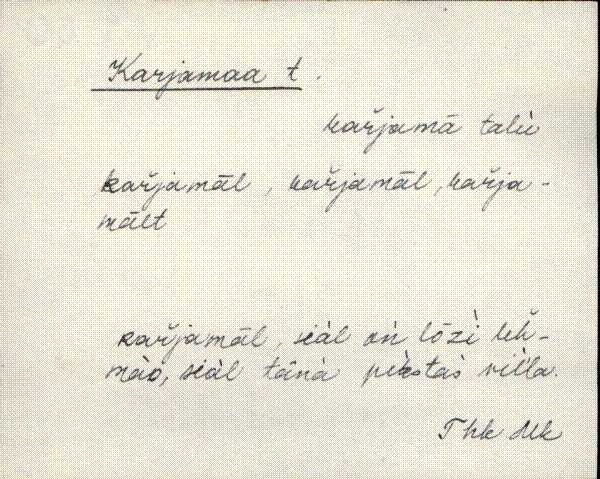 Karjamaa t.
kaŕjamā talù
kaŕjamāl, kaŕjamāl, kaŕja-
mālt
kaŕjamāl, siàl oǹ lōzì leh-
mào, siàl tānà pèkstas vìlla.
Thk Mk